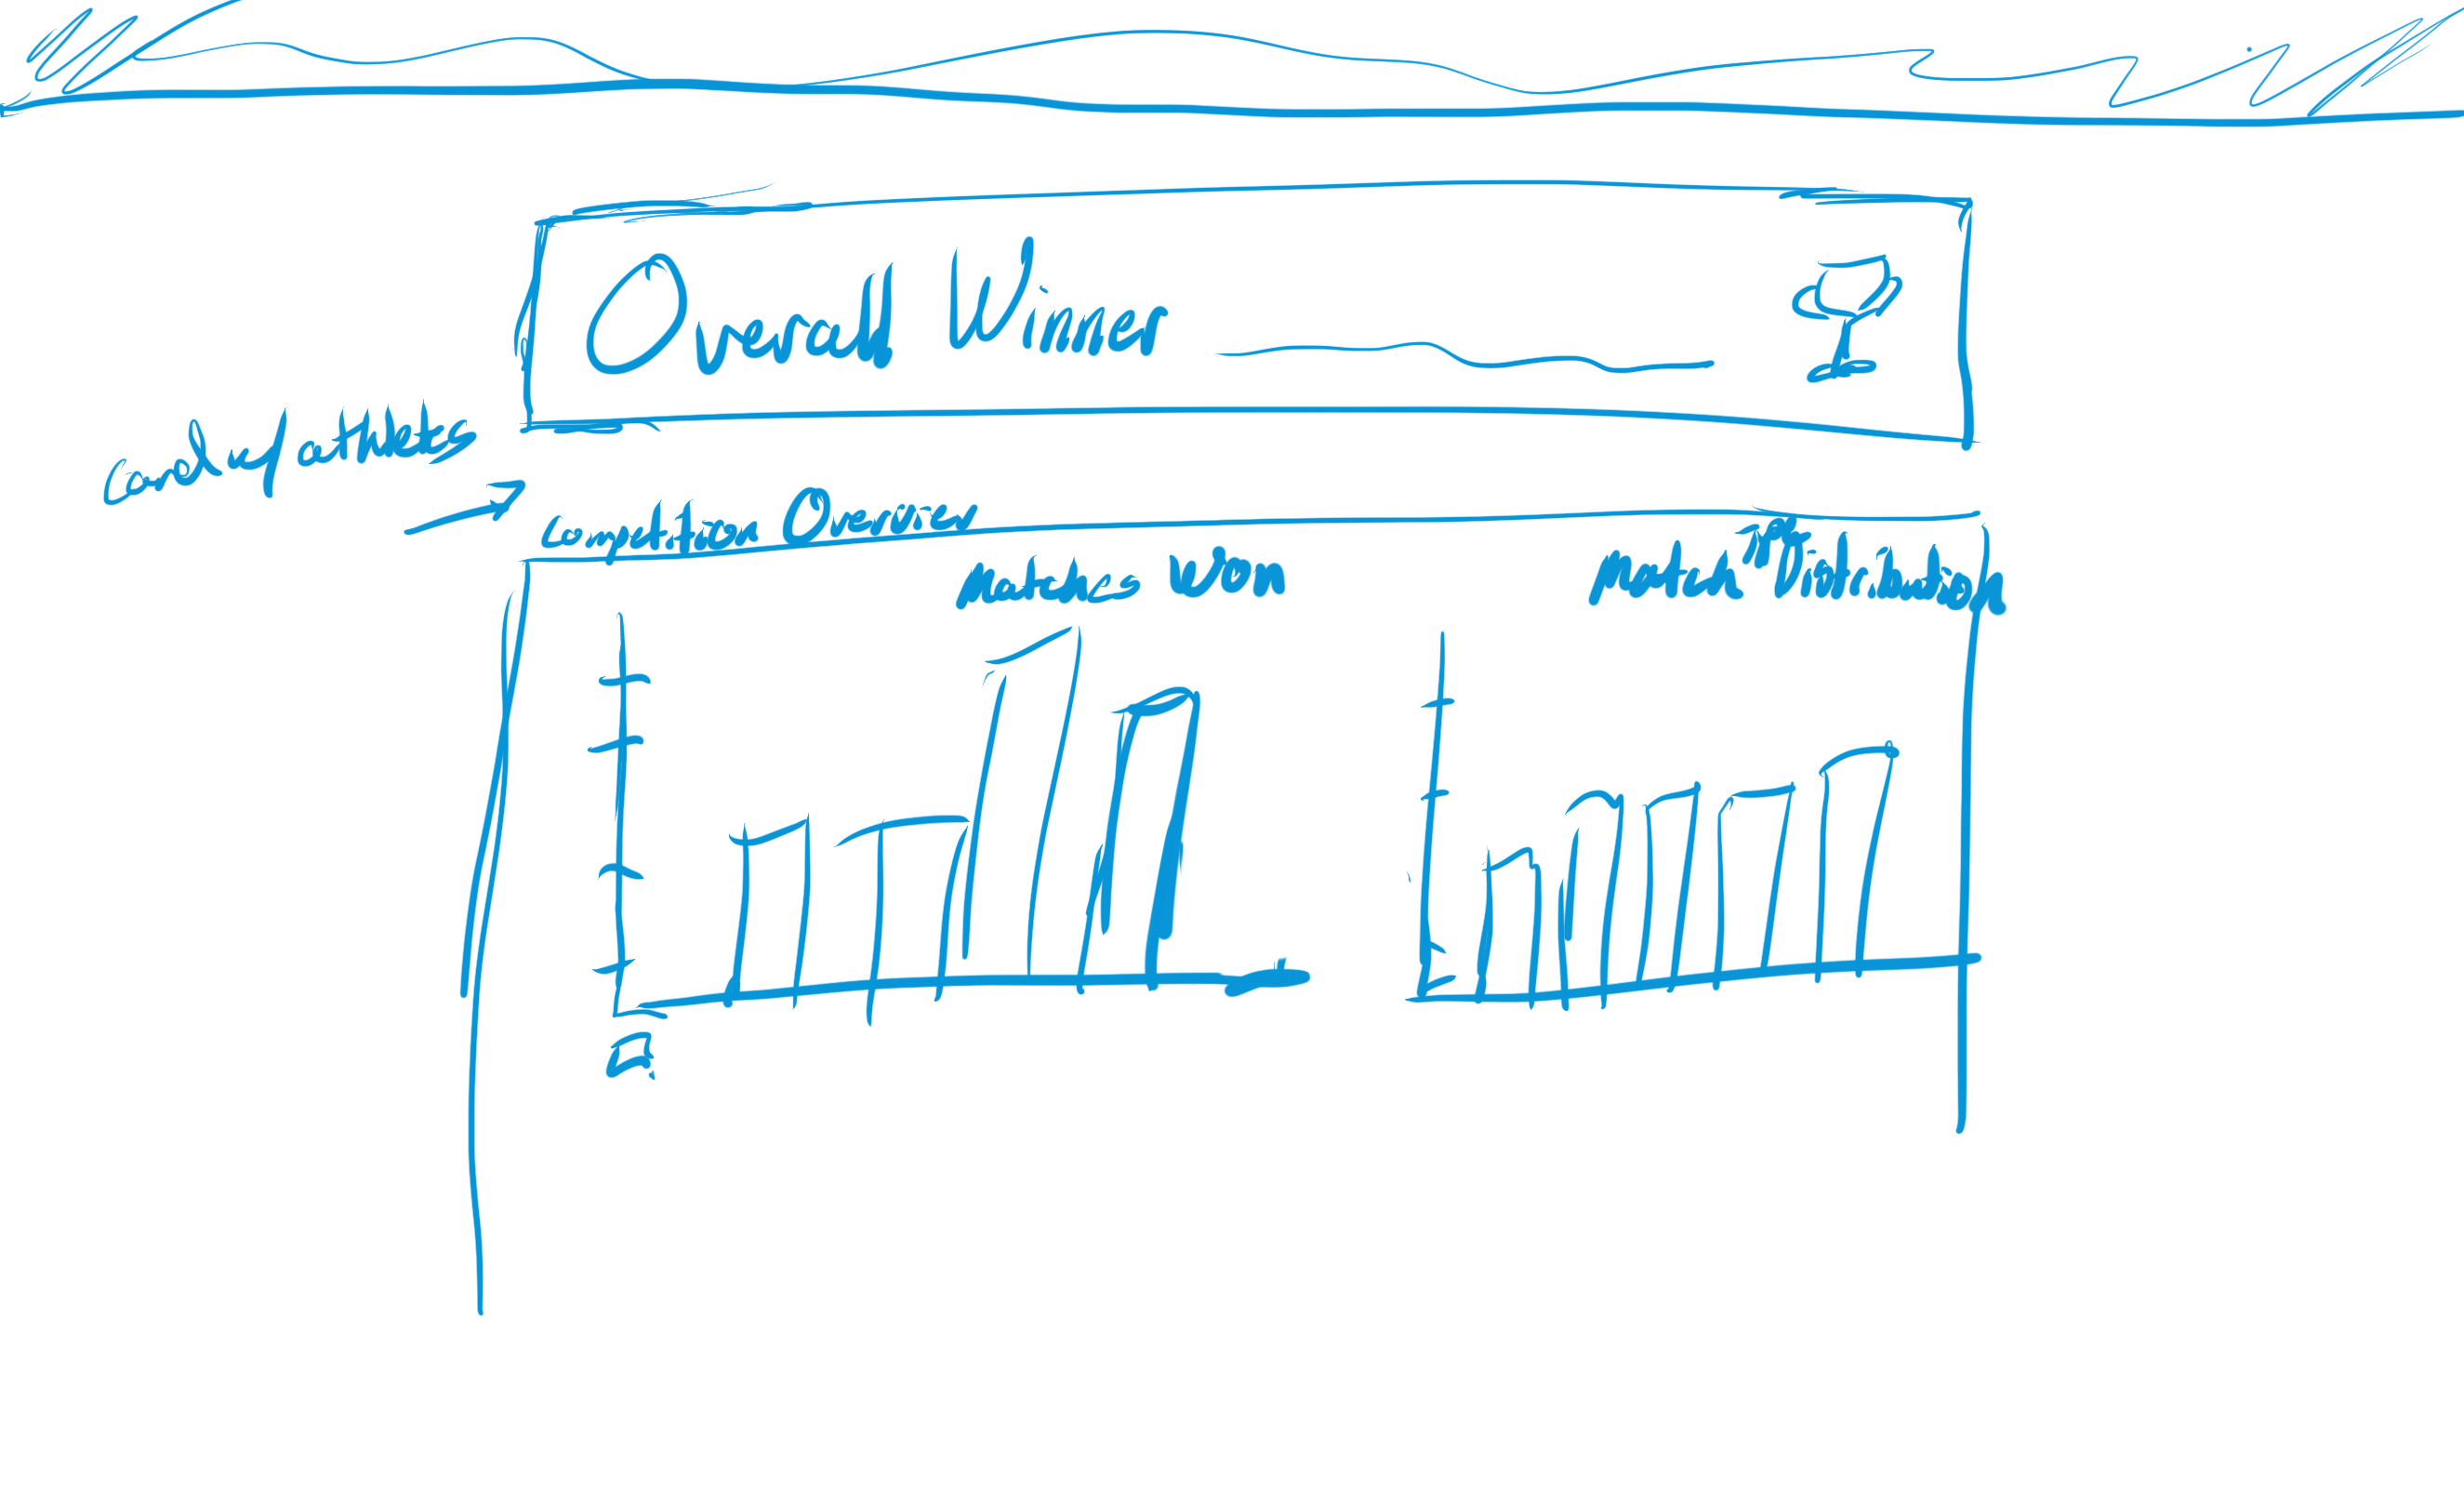 Overall Winner
Card y athlets
Competition Overview
Matches won
Medal Distribution